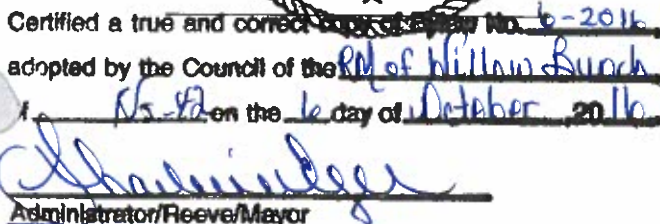 Certified a true and correct copy of Bylaw No. 6-2016
adopted by the Council of the RM of Willow Bunch
of No. 42 on the 6 day of October, 2016
Administrator/Reeve/Mayor